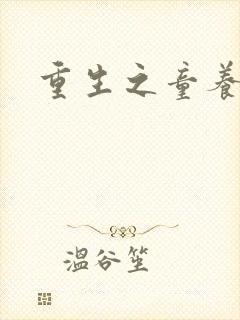 重生之童养
温谷笙